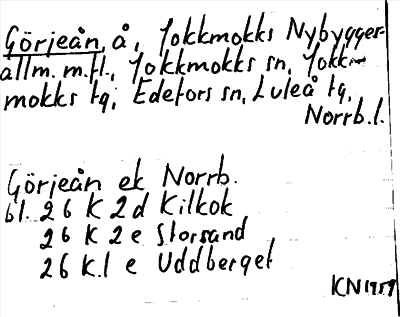 Görjeån, å, Jokkmokks Nybygger-
allm. m.fl., Jokkmokks sn, Jokk-
mokks tg; Edefors sn, Luleå tg,
Norrb.l.
Görjeån ek Norrb.
bl. 26 K 2d Kilkok
26 K 2e Storsand
26 K.1 e Uddberget
KN 1959